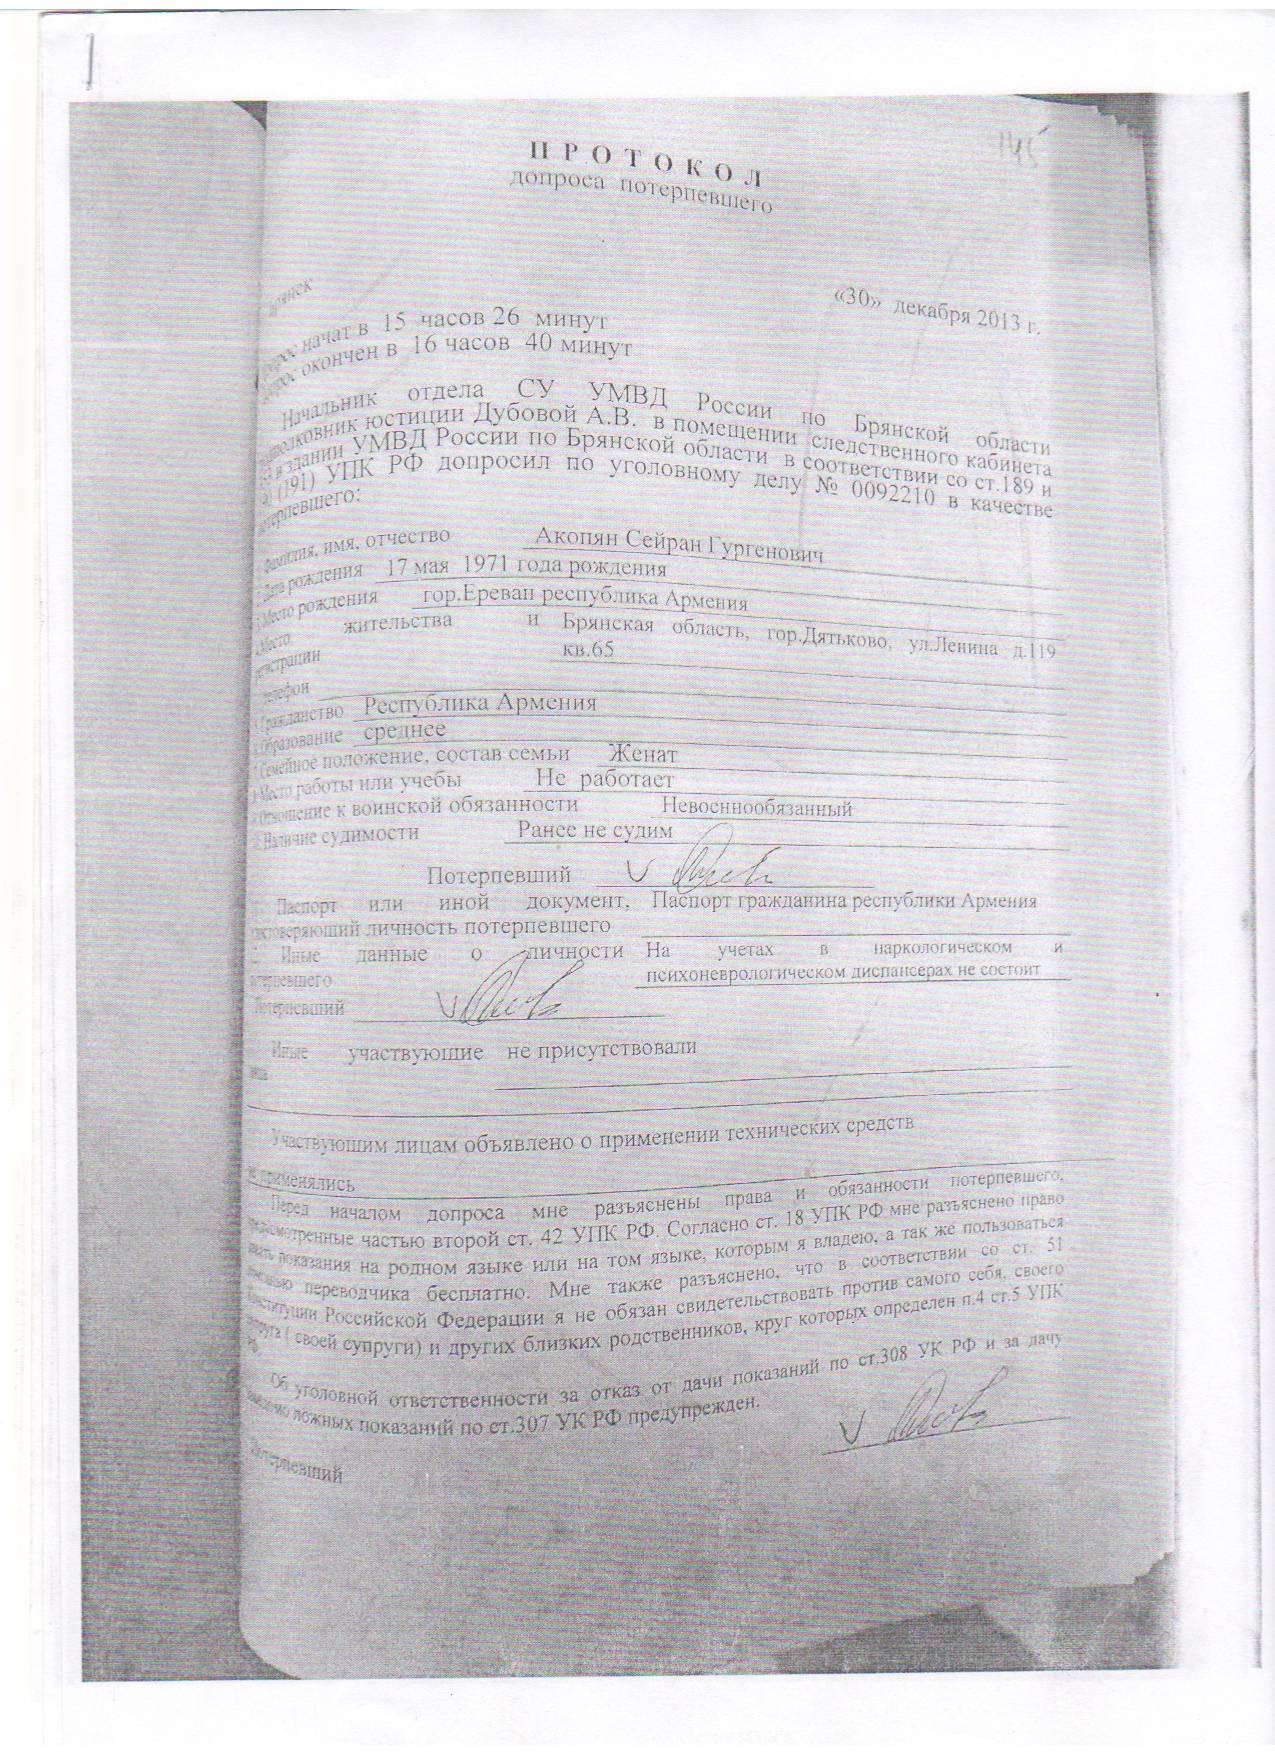 145
П Р О Т О К О Л
допроса потерпевшего
Брянск
«30» декабря 2013 г.
Допрос начат в 15 часов 26 минут
Допрос окончен в 16 часов 40 минут
Начальник отдела СУ УМВД России по Брянской области
подполковник юстиции Дубовой А.В. в помещении следственного кабинета
в здании УМВД России по Брянской области в соответствии со ст.189 и
(191) УПК РФ допросил по уголовному делу № 0092210 в качестве
потерпевшего:
Фамилия, имя, отчество Акопян Сейран Гургенович
2.Дата рождения 17 мая 1971 года рождения
3.Место рождения гор.Ереван республика Армения
4.Место жительства и Брянская область, гор.Дятьково, ул.Ленина д.119
регистрации кв.65
телефон
Гражданство Республика Армения
Образование среднее
7.Семейное положение, состав семьи Женат
Место работы или учебы Не работает
Отношение к воинской обязанности Невоеннообязанный
Наличие судимости Ранее не судим
Потерпевший V
Паспорт или иной документ, Паспорт гражданина республики Армения
удостоверяющий личность потерпевшего
Иные данные о личности На учетах в наркологическом и
потерпевшего психоневрологическом диспансерах не состоит
Потерпевший V
Иные участвующие не присутствовали
лица
Участвующим лицам объявлено о применении технических средств
не применялись
Перед началом допроса мне разъяснены права и обязанности потерпевшего,
предусмотренные частью второй ст. 42 УПК РФ. Согласно ст. 18 УПК РФ мне разъяснено право
давать показания на родном языке или на том языке, которым я владею, а так же пользоваться
помощью переводчика бесплатно. Мне также разъяснено, что в соответствии со ст. 51
Конституции Российской Федерации я не обязан свидетельствовать против самого себя, своего
супруга ( своей супруги) и других близких родственников, круг которых определен п.4 ст.5 УПК
РФ.
Об уголовной ответственности за отказ от дачи показаний по ст.308 УК РФ и за дачу
заведомо ложных показаний по ст.307 УК РФ предупрежден.
V
Потерпевший